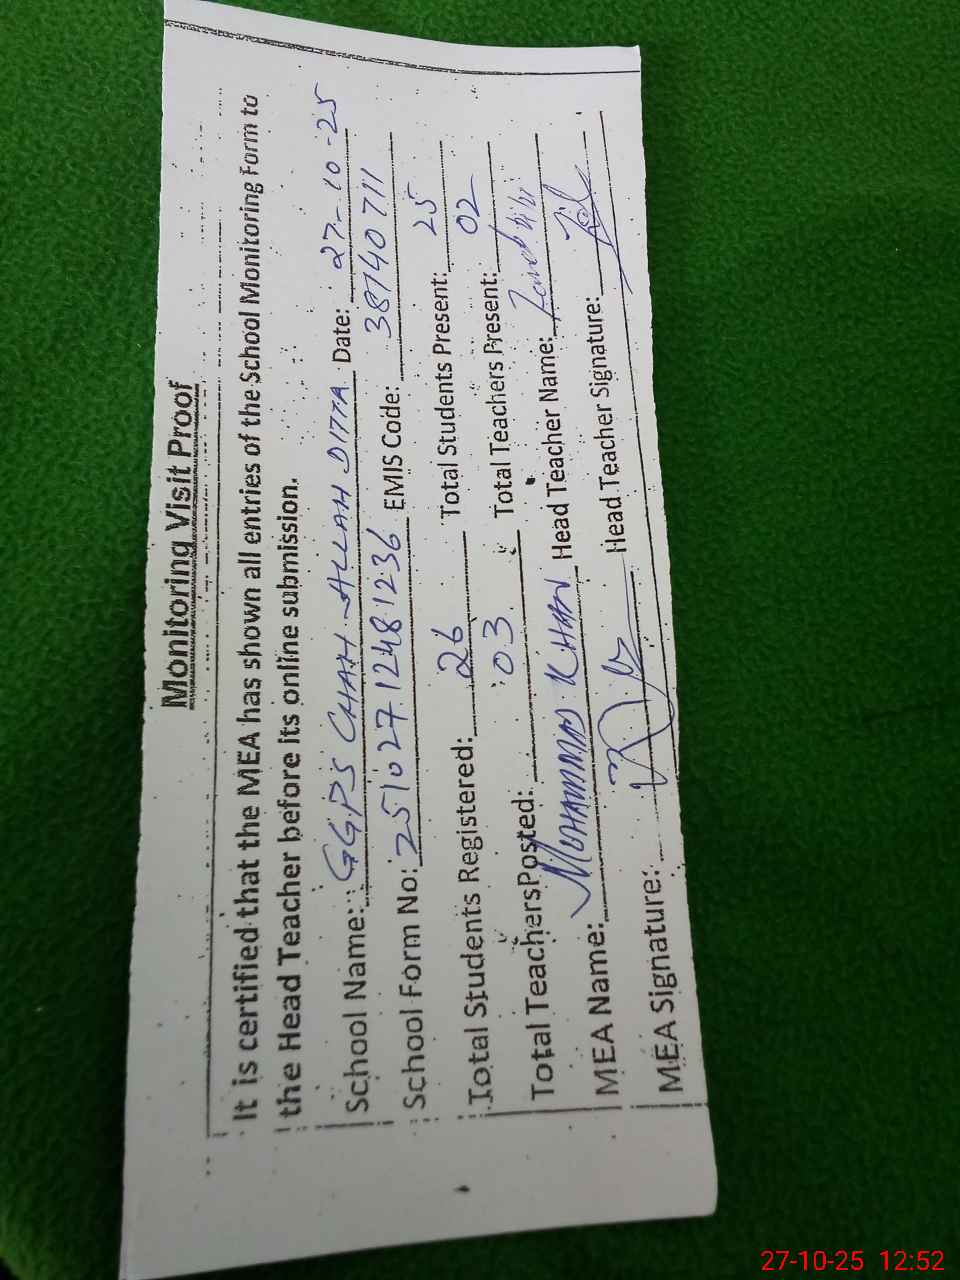 Monitoring Visit Proof
It is certified that the MEA has shown all entries of the School Monitoring Form to
the Head Teacher before its online submission.
School Name: GGPS CHAH ALLAH DITTA Date: 27-10-25
School Form No: 25102712481236 EMIS Code: 38740711
Total Students Registered: 26 Total Students Present: 25
Total Teachers Posted: 03 Total Teachers Present: 02
MEA Name: MUHAMMAD KHAN Head Teacher Name:
MEA Signature: Head Teacher Signature:
27-10-25 12:52